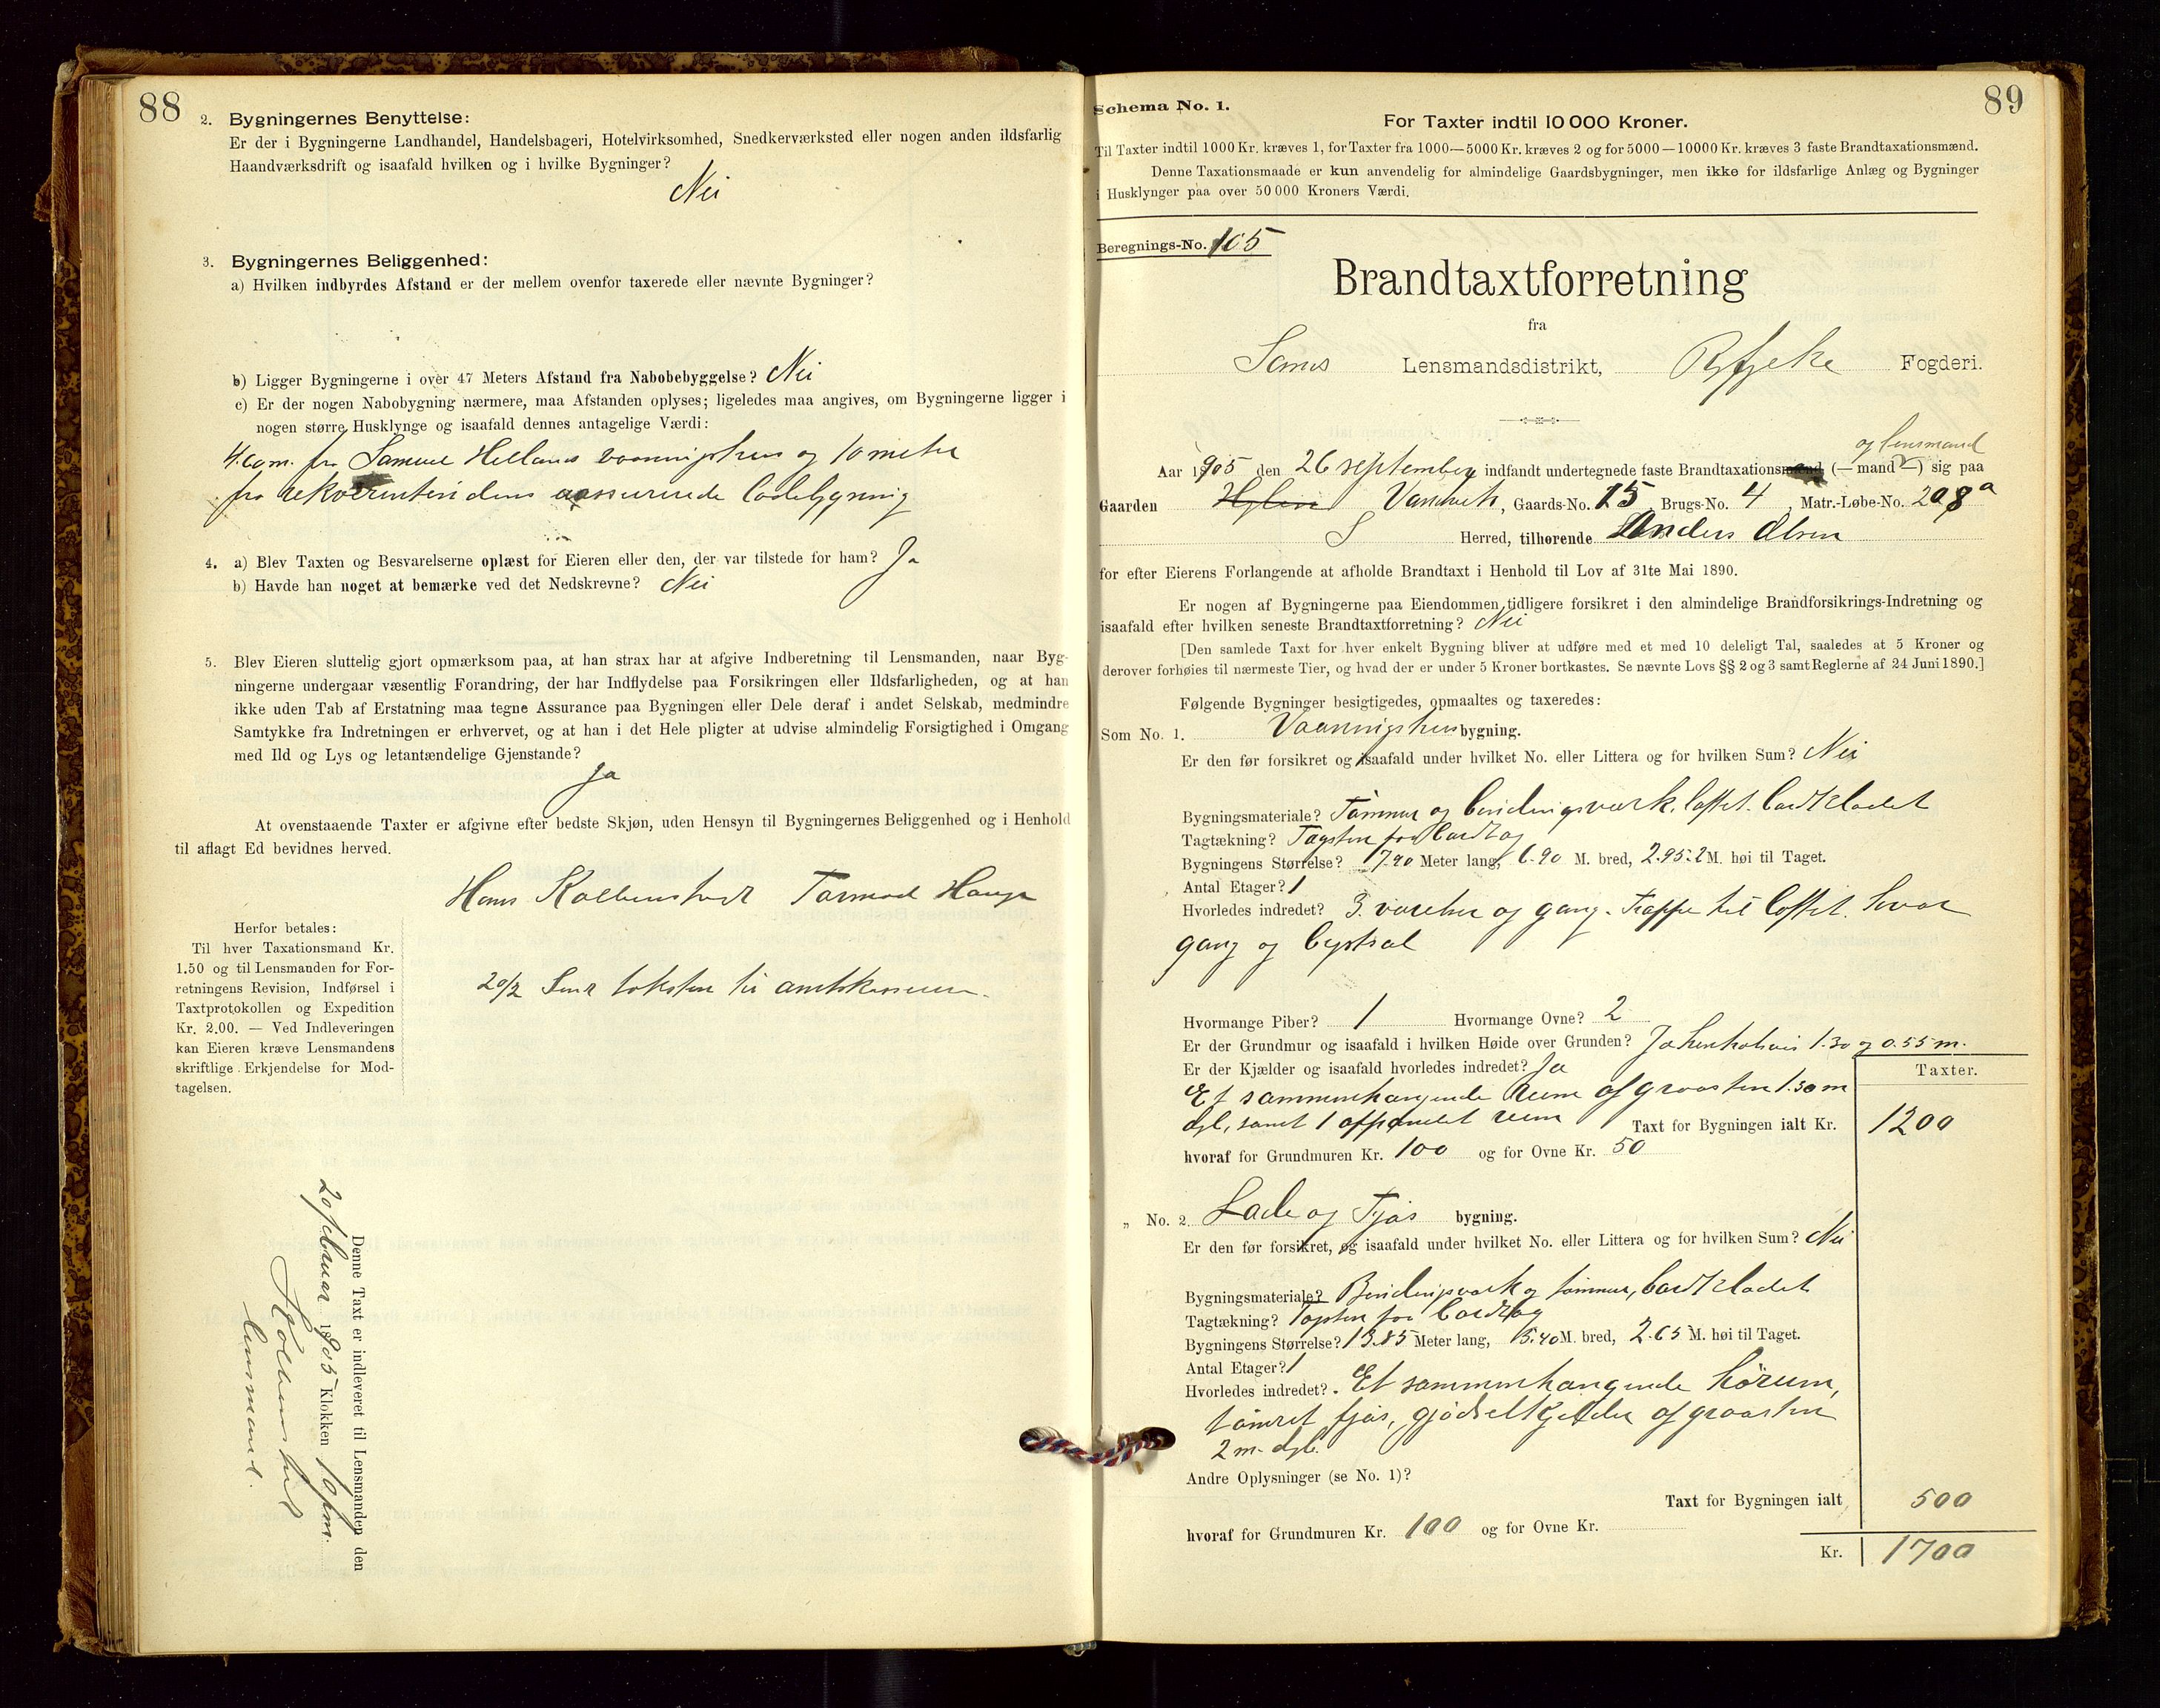 88
2. Bygningernes Benyttelse:
Er der i Bygningerne Landhandel, Handelsbageri, Hotelvirksomhed, Snedkerværksted eller nogen anden ildsfarlig
Haandværksdrift og isaafald hvilken og i hvilke Bygninger?
Nei
3. Bygningernes Beliggenhed:
a) Hvilken indbyrdes Afstand er der mellem ovenfor taxerede eller nævnte Bygninger?
b) Ligger Bygningerne i over 47 Meters Afstand fra Nabobebyggelse? Nei
c) Er der nogen Nabobygning nærmere, maa Afstanden oplyses; ligeledes maa angives, om Bygningerne ligger i
nogen større Husklynge og isaafald dennes antagelige Værdi:
4.60 m. fra Samuel Hellands vaaningshus og 10 meter
fra rekvirentens uassurerede ladebygning
4. a) Blev Taxten og Besvarelserne oplæst for Eieren eller den, der var tilstede for ham? Ja
b) Havde han noget at bemærke ved det Nedskrevne? Nei
5. Blev Eieren sluttelig gjort opmærksom paa, at han strax har at afgive Indberetning til Lensmanden, naar Byg-
ningerne undergaar væsentlig Forandring, der har Indflydelse paa Forsikringen eller Ildsfarligheden, og at han
ikke uden Tab af Erstatning maa tegne Assurance paa Bygningen eller Dele deraf i andet Selskab, medmindre
Samtykke fra Indretningen er erhvervet, og at han i det Hele pligter at udvise almindelig Forsigtighed i Omgang
med Ild og Lys og letantændelige Gjenstande?
Ja
At ovenstaaende Taxter er afgivne efter bedste Skjøn, uden Hensyn til Bygningernes Beliggenhed og i Henhold
til aflagt Ed bevidnes herved.
Hans Kolbenstvedt Tormod Hauge
Herfor betales:
Til hver Taxationsmand Kr.
1.50 og til Lensmanden for For-
retningens Revision, Indførsel i
Taxtprotokollen og Expedition
Kr. 2.00. — Ved Indleveringen
kan Eieren kræve Lensmandens
skriftlige Erkjendelse for Mod-
tagelsen.
20/2 Sendt taksten til amtskassereren.
Denne Taxt er indleveret til Lensmanden den
20 februar 1905 Klokken 10 fm.
Kolbenstvedt
lensmand.
Schema No. 1.
89
For Taxter indtil 10 000 Kroner.
Til Taxter indtil 1000 Kr. kræves 1, for Taxter fra 1000—5000 Kr. kræves 2 og for 5000—10000 Kr. kræves 3 faste Brandtaxationsmænd.
Denne Taxationsmaade er kun anvendelig for almindelige Gaardsbygninger, men ikke for ildsfarlige Anlæg og Bygninger
i Husklynger paa over 50 000 Kroners Værdi.
Beregnings-No. 105
Brandtaxtforretning
fra
Lensmandsdistrikt, Ryfylke Fogderi.
og lensmand
Aar 1905 den 26 september indfandt undertegnede faste Brandtaxationsmænd (—mand—) sig paa
Gaarden Vandvik, Gaards-No. 15 Brugs-No. 4, Matr.-Løbe-No. 208a
S Herred, tilhørende Anders Olsen
for efter Eierens Forlangende at afholde Brandtaxt i Henhold til Lov af 31te Mai 1890.
Er nogen af Bygningerne paa Eiendommen tidligere forsikret i den almindelige Brandforsikrings-Indretning og
isaafald efter hvilken seneste Brandtaxtforretning? Nei
[Den samlede Taxt for hver enkelt Bygning bliver at udføre med et med 10 deleligt Tal, saaledes at 5 Kroner og
derover forhøies til nærmeste Tier, og hvad der er under 5 Kroner bortkastes. Se nævnte Lovs §§ 2 og 3 samt Reglerne af 24 Juni 1890.]
Følgende Bygninger besigtigedes, opmaaltes og taxeredes:
Som No. 1. Vaaningshus bygning.
Er den før forsikret og isaafald under hvilket No. eller Littera og for hvilken Sum? Nei
Bygningsmateriale? Tømmer og bindingsværk. loftet. bordklædet
Tagtækning? Tagsten paa bordtag
Bygningens Størrelse? 7.90 Meter lang, 6.90 M. bred, 2.95.2 M. høi til Taget.
Antal Etager? 1
Hvorledes indredet? 3 værelser og gang. Trappe til loftet. hvor
gang og lystsal
Hvormange Piber? 1 Hvormange Ovne? 2
Er der Grundmur og isaafald i hvilken Høide over Grunden? Ja henholsvis 1.30 og 0.55 m.
Er der Kjælder og isaafald hvorledes indredet? Ja
Et sammenhængende rum af graasten 1.30 m
dyb, samt 1 oppanelet rum Taxt for Bygningen ialt Kr.
Taxter.
1200
hvoraf for Grundmuren Kr. 100 og for Ovne Kr. 50
„ No. 2. Lade og Fjøs bygning.
Er den før forsikret, og isaafald under hvilket No. eller Littera og for hvilken Sum? Nei
Bygningsmateriale? Bindingsværk og tømmer, bordklædet
Tagtækning? Tagsten paa bordtag
Bygningens Størrelse? 13.85 Meter lang, 5.40 M. bred, 2.65 M. høi til Taget.
Antal Etager? 1
Hvorledes indredet? Et sammenhængende hørum,
tømret fjøs, gjødselkjelder af graasten
2 m. dyb.
Andre Oplysninger (se No. 1)?
Taxt for Bygningen ialt 500
hvoraf for Grundmuren Kr. 100 og for Ovne Kr.
Kr. 1700